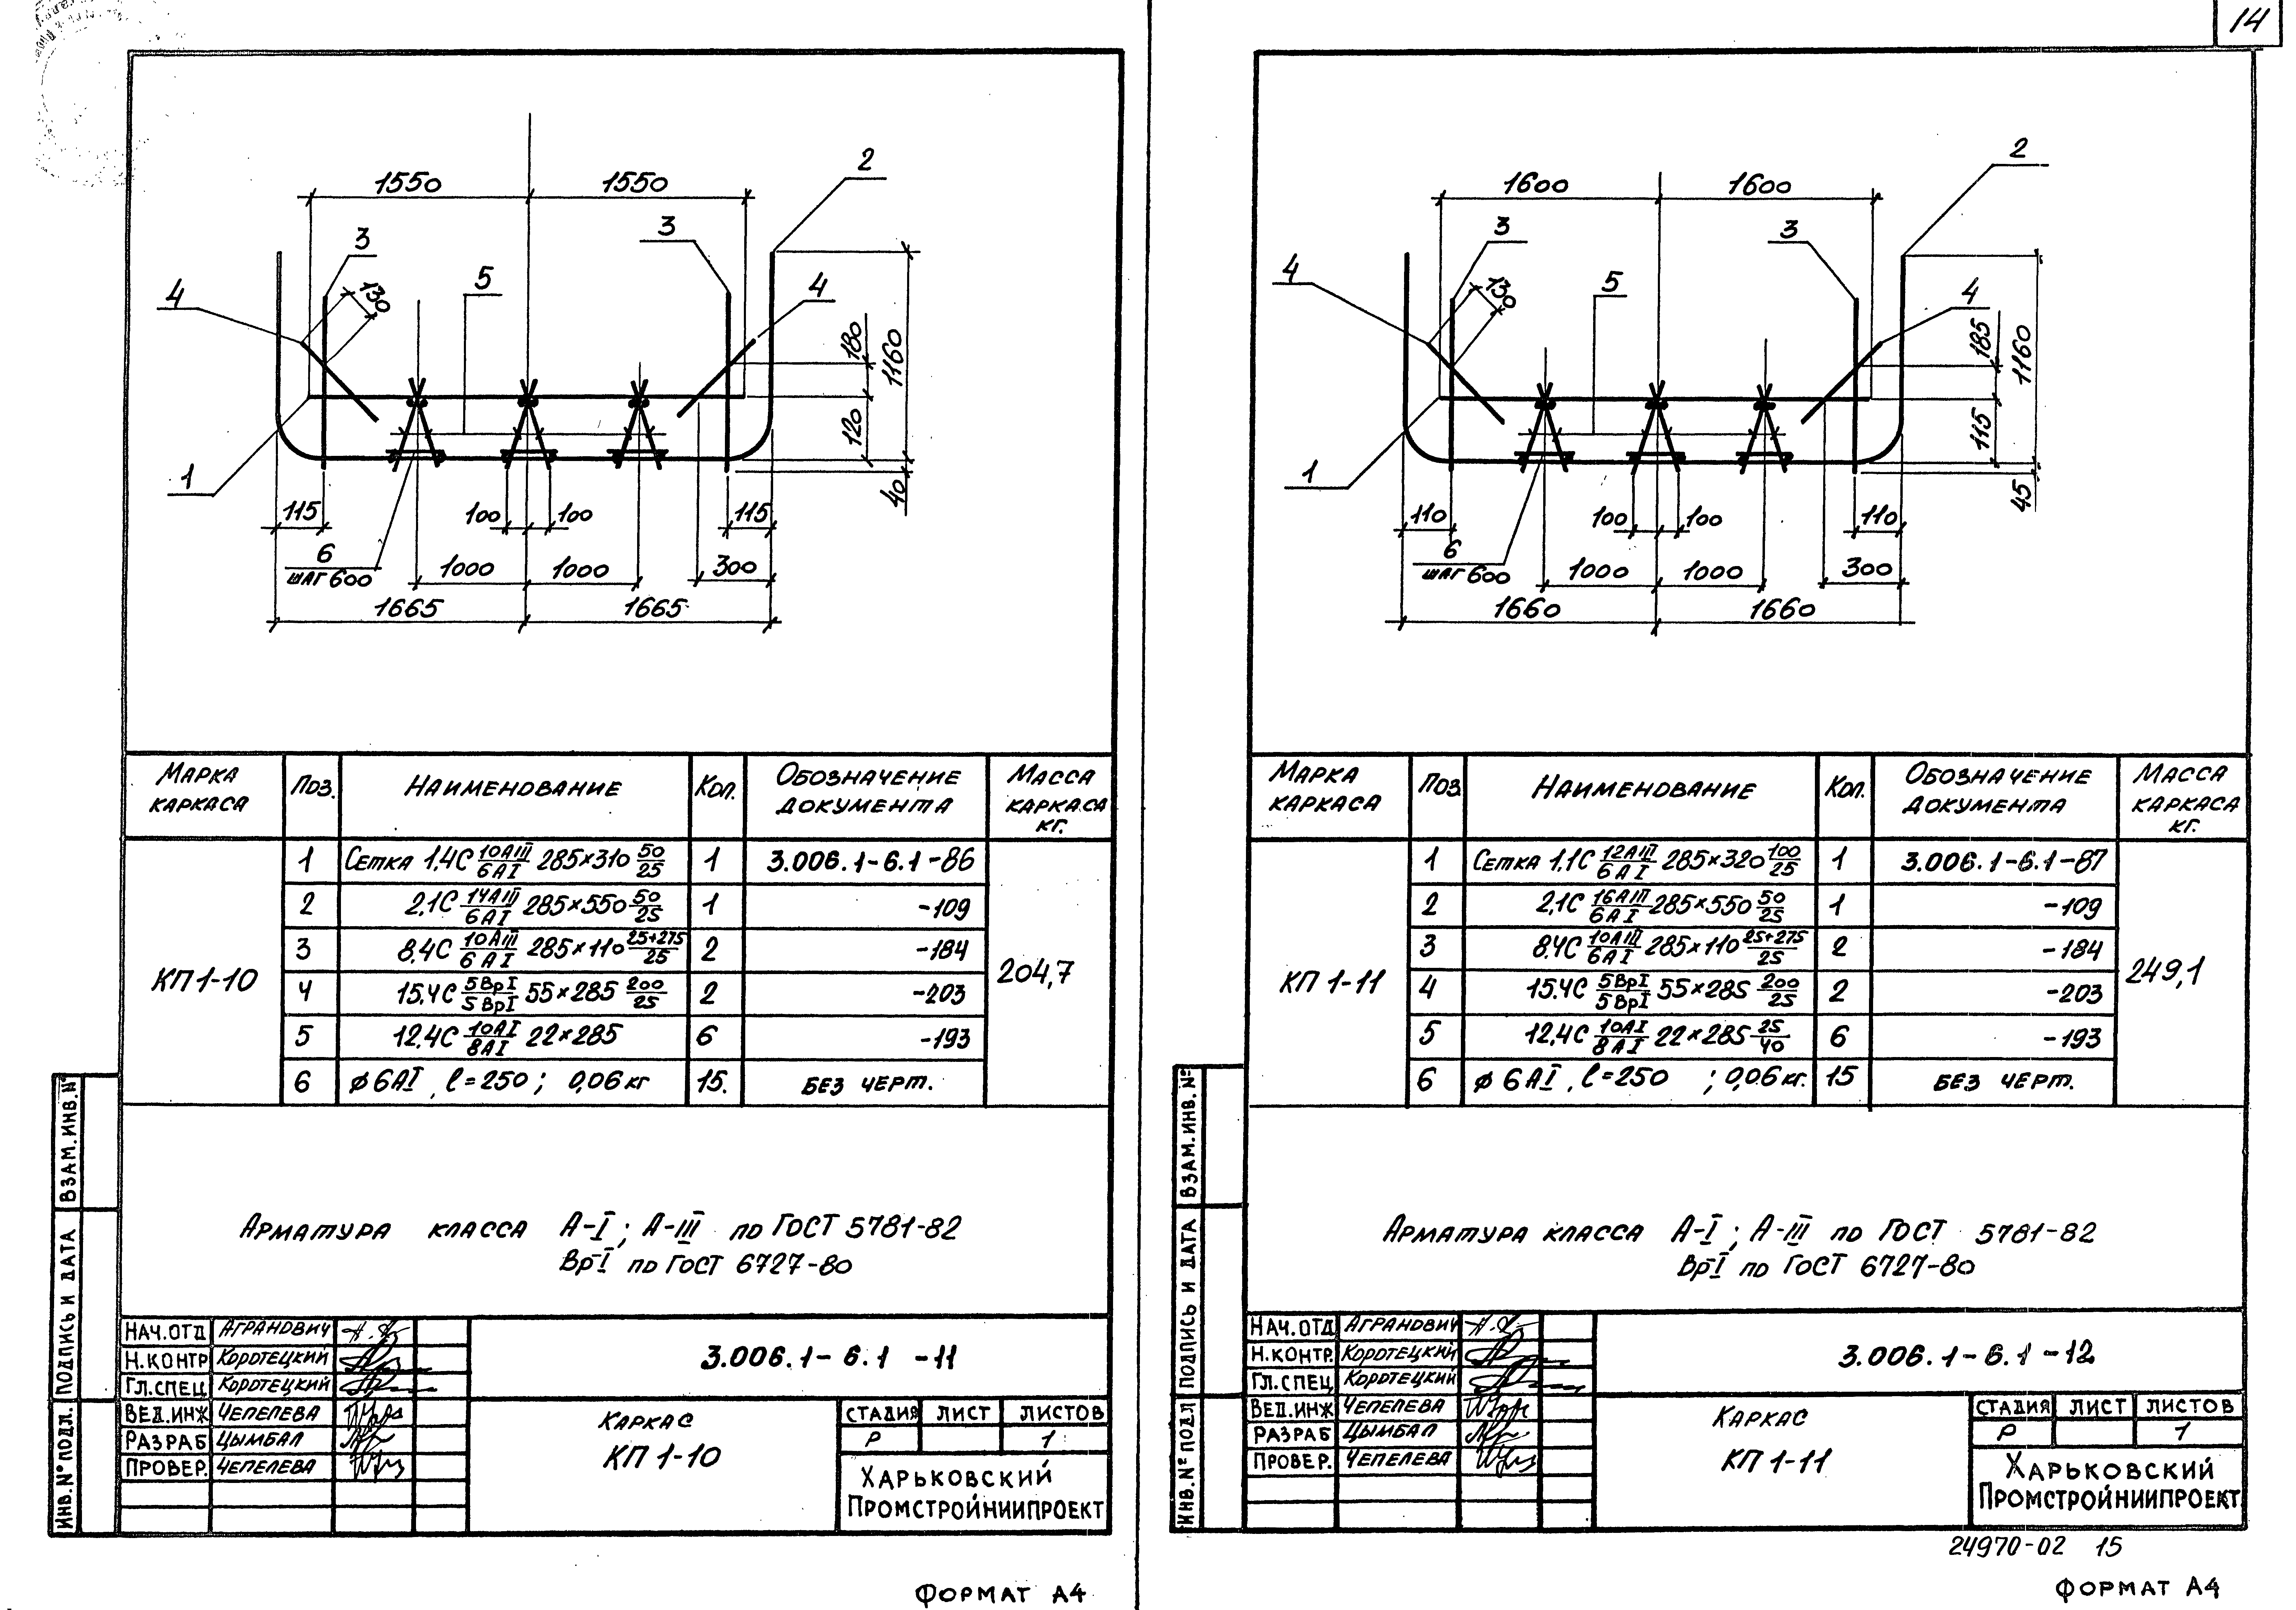 14
1550 1550
2
3
3
4
5
4
130
180
1160
120
40
1
115
100 100
115
6
шаг 600
1000 1000
300
1665 1665
Марка каркаса Поз. Наименование Кол. Обозначение документа Масса каркаса кг.
КП1-10
1 Сетка 1,4С 10АIII/6АI 285×310 50/25 1 3.006.1-6.1-86
2 2,1С 14АIII/6АI 285×550 50/25 1 -109
3 8,4С 10АIII/6АI 285×110 25+275/25 2 -184
4 15.4С 5ВрI/5ВрI 55×285 200/25 2 -203
5 12.4С 10АI/8АI 22×285 6 -193
6 ϕ6АI, l=250; 0,06кг 15. без черт.
204,7
Арматура класса А-I; А-III по ГОСТ 5781-82
Вр-I по ГОСТ 6727-80
Взам.инв.№
Подпись и дата
Инв.№ подл.
Нач.отд Агранович
Н.контр Коротецкий
Гл.спец Коротецкий
Вед.инж Чепелева
Разраб Цымбал
Провер. Чепелева
3.006.1-6.1 -11
Каркас
КП 1-10
Стадия Лист Листов
Р 1
Харьковский
Промстройниипроект
Формат А4
1600 1600
2
3
3
4
5
4
130
185
1160
115
45
1
110
100 100
110
6
шаг 600
1000 1000
300
1660 1660
Марка каркаса Поз Наименование Кол. Обозначение документа Масса каркаса кг.
КП 1-11
1 Сетка 1,1С 12АIII/6АI 285×320 100/25 1 3.006.1-6.1-87
2 2,1С 16АIII/6АI 285×550 50/25 1 -109
3 8.4С 10АIII/6АI 285×110 25+275/25 2 -184
4 15.4С 5ВрI/5ВрI 55×285 200/25 2 -203
5 12,4С 10АI/8АI 22×285 25/40 6 -193
6 ϕ 6АI, l=250 ; 0,06кг. 15 без черт.
249,1
Арматура класса А-I; А-III по ГОСТ 5781-82
Вр-I по ГОСТ 6727-80
Взам.инв.№
Подпись и дата
Инв.№ подл
Нач.отд Агранович
Н.контр. Коротецкий
Гл.спец Коротецкий
Вед.инж Чепелева
Разраб Цымбал
Провер. Чепелева
3.006.1-6.1-12
Каркас
КП 1-11
Стадия Лист Листов
Р 1
Харьковский
Промстройниипроект
24970-02 15
Формат А4